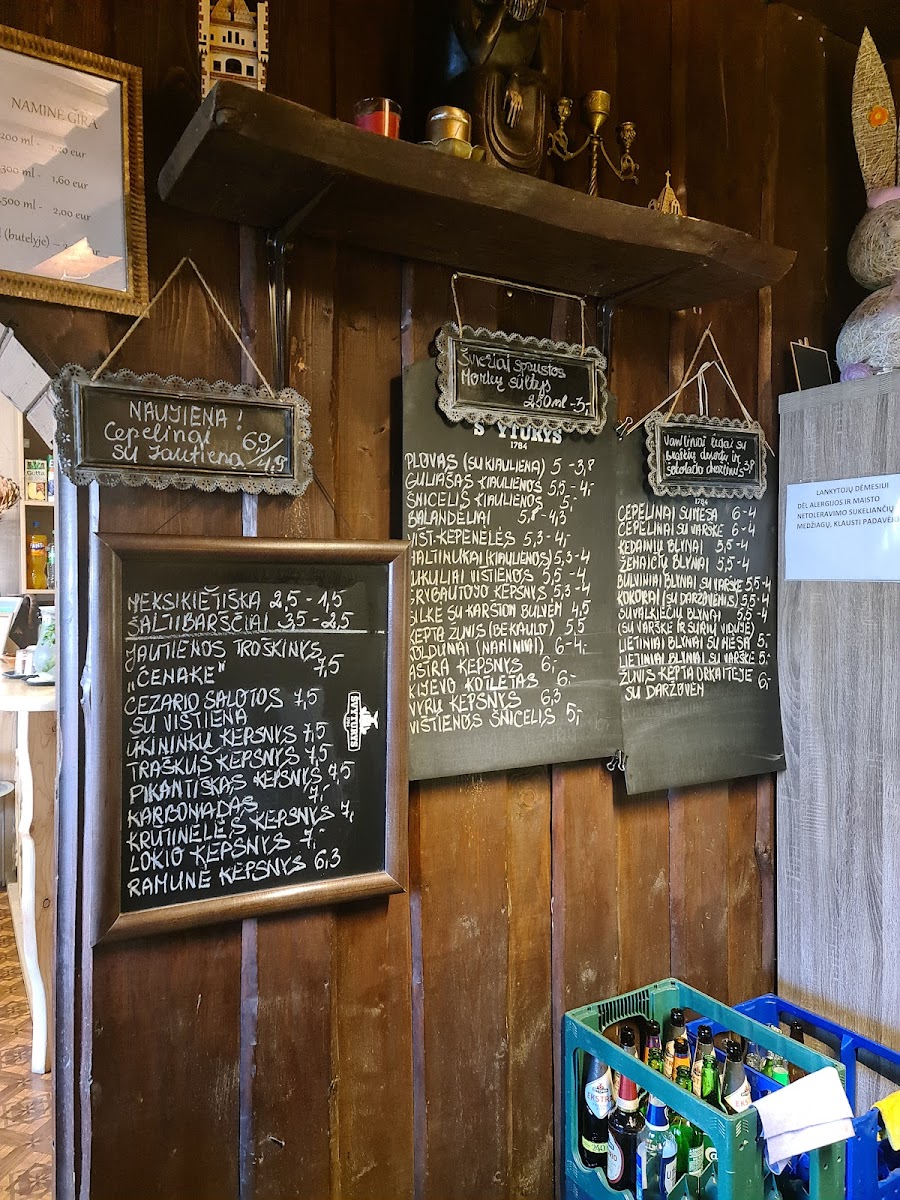 NAMINĖ GIRA
200 ml -
300 ml - 1,60 eur
500 ml - 2,00 eur
(butelyje) –
NAUJIENA!
Cepelinai 6,9/
su Jautiena 4,9
Šviežiai spaustos
Morkų sultys
250ml -3,-
MEKSIKIETIŠKA 2,5 - 1,5
ŠALTIBARŠČIAI 3,5 - 2,5
JAUTIENOS TROŠKINYS
„ČENAKĖ" 7,5
CEZARIO SALOTOS 7,5
SU VIŠTIENA
ŪKININKŲ KEPSNYS 7,5
TRAŠKUS KEPSNYS 7,5
PIKANTIŠKAS KEPSNYS 7,5
KARBONADAS 7,-
KRŪTINĖLĖS KEPSNYS 7,-
LOKIO KEPSNYS 7,-
RAMUNĖ KEPSNYS 6,3
ŠVYTURYS
1784
PLOVAS (SU KIAULIENA) 5 -3,8
GULIAŠAS KIAULIENOS 5,5 -4,-
ŠNICELIS KIAULIENOS 5,-
BALANDĖLIAI
VIŠT.KEPENĖLĖS 5,3 -4,-
MALTINUKAI (KIAULIENOS) 5,3-4
KUKULIAI VIŠTIENOS 5,5 -4
GRYBAUTOJO KEPSNYS 5,3
SILKĖ SU KARŠTOM BULVĖM 4,5
KEPTA ŽUVIS (BE KAULO) 5,5
KOLDŪNAI (NAMINIAI) 6-4,-
ASTRA KEPSNYS 6,-
KIJEVO KOTLETAS 6,-
VYRŲ KEPSNYS 6,3
VIŠTIENOS ŠNICELIS 5,-
1784
CEPELINAI SU MĖSA 6 -4
CEPELINAI SU VARŠKE 6 -4
KĖDAINIŲ BLYNAI 5,5 -4
ŽEMAIČIŲ BLYNAI 5,5 -4
BULVINIAI BLYNAI SU VARŠKE 5,5 -4
KOKORAI (SU DARŽOVĖMIS) 5,5 -4
SUVALKIEČIŲ BLYNAI 5,5 -4
(SU VARŠKE IR SŪRIU VIDUJE)
LIETINIAI BLYNAI SU MĖSA 5,-
LIETINIAI BLYNAI SU VARŠKE 5,-
ŽUVIS KEPTA ORKAITĖJE 6,-
SU DARŽOVĖM
LANKYTOJŲ DĖMESIUI
DĖL ALERGIJOS IR MAISTO
NETOLERAVIMO SUKELIANČIŲ
MEDŽIAGŲ, KLAUSTI PADAVĖJ